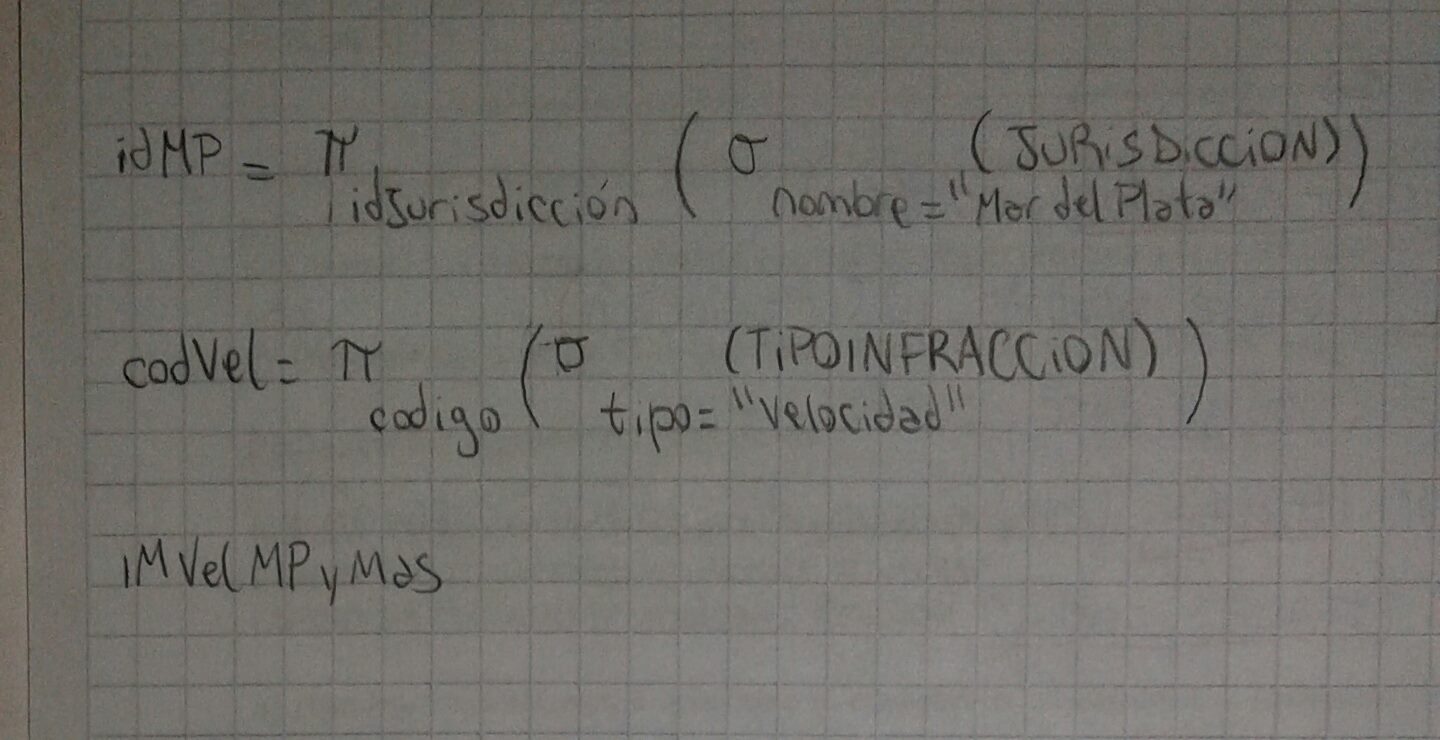 idMP = π idJurisdicción ( σ nombre = "Mar del Plata" (JURiSDiCCiON))
codVel = π codigo ( σ tipo = "Velocidad" (TiPOiNFRACCiON) )
iMVelMPyMas